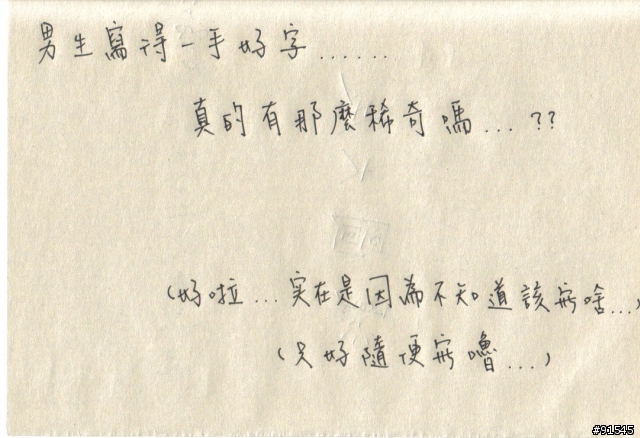 男生寫得一手好字......
真的有那麼稀奇嗎...??
(好啦...実在是因為不知道該写啥...)
(只好隨便写嚕...)
#91545